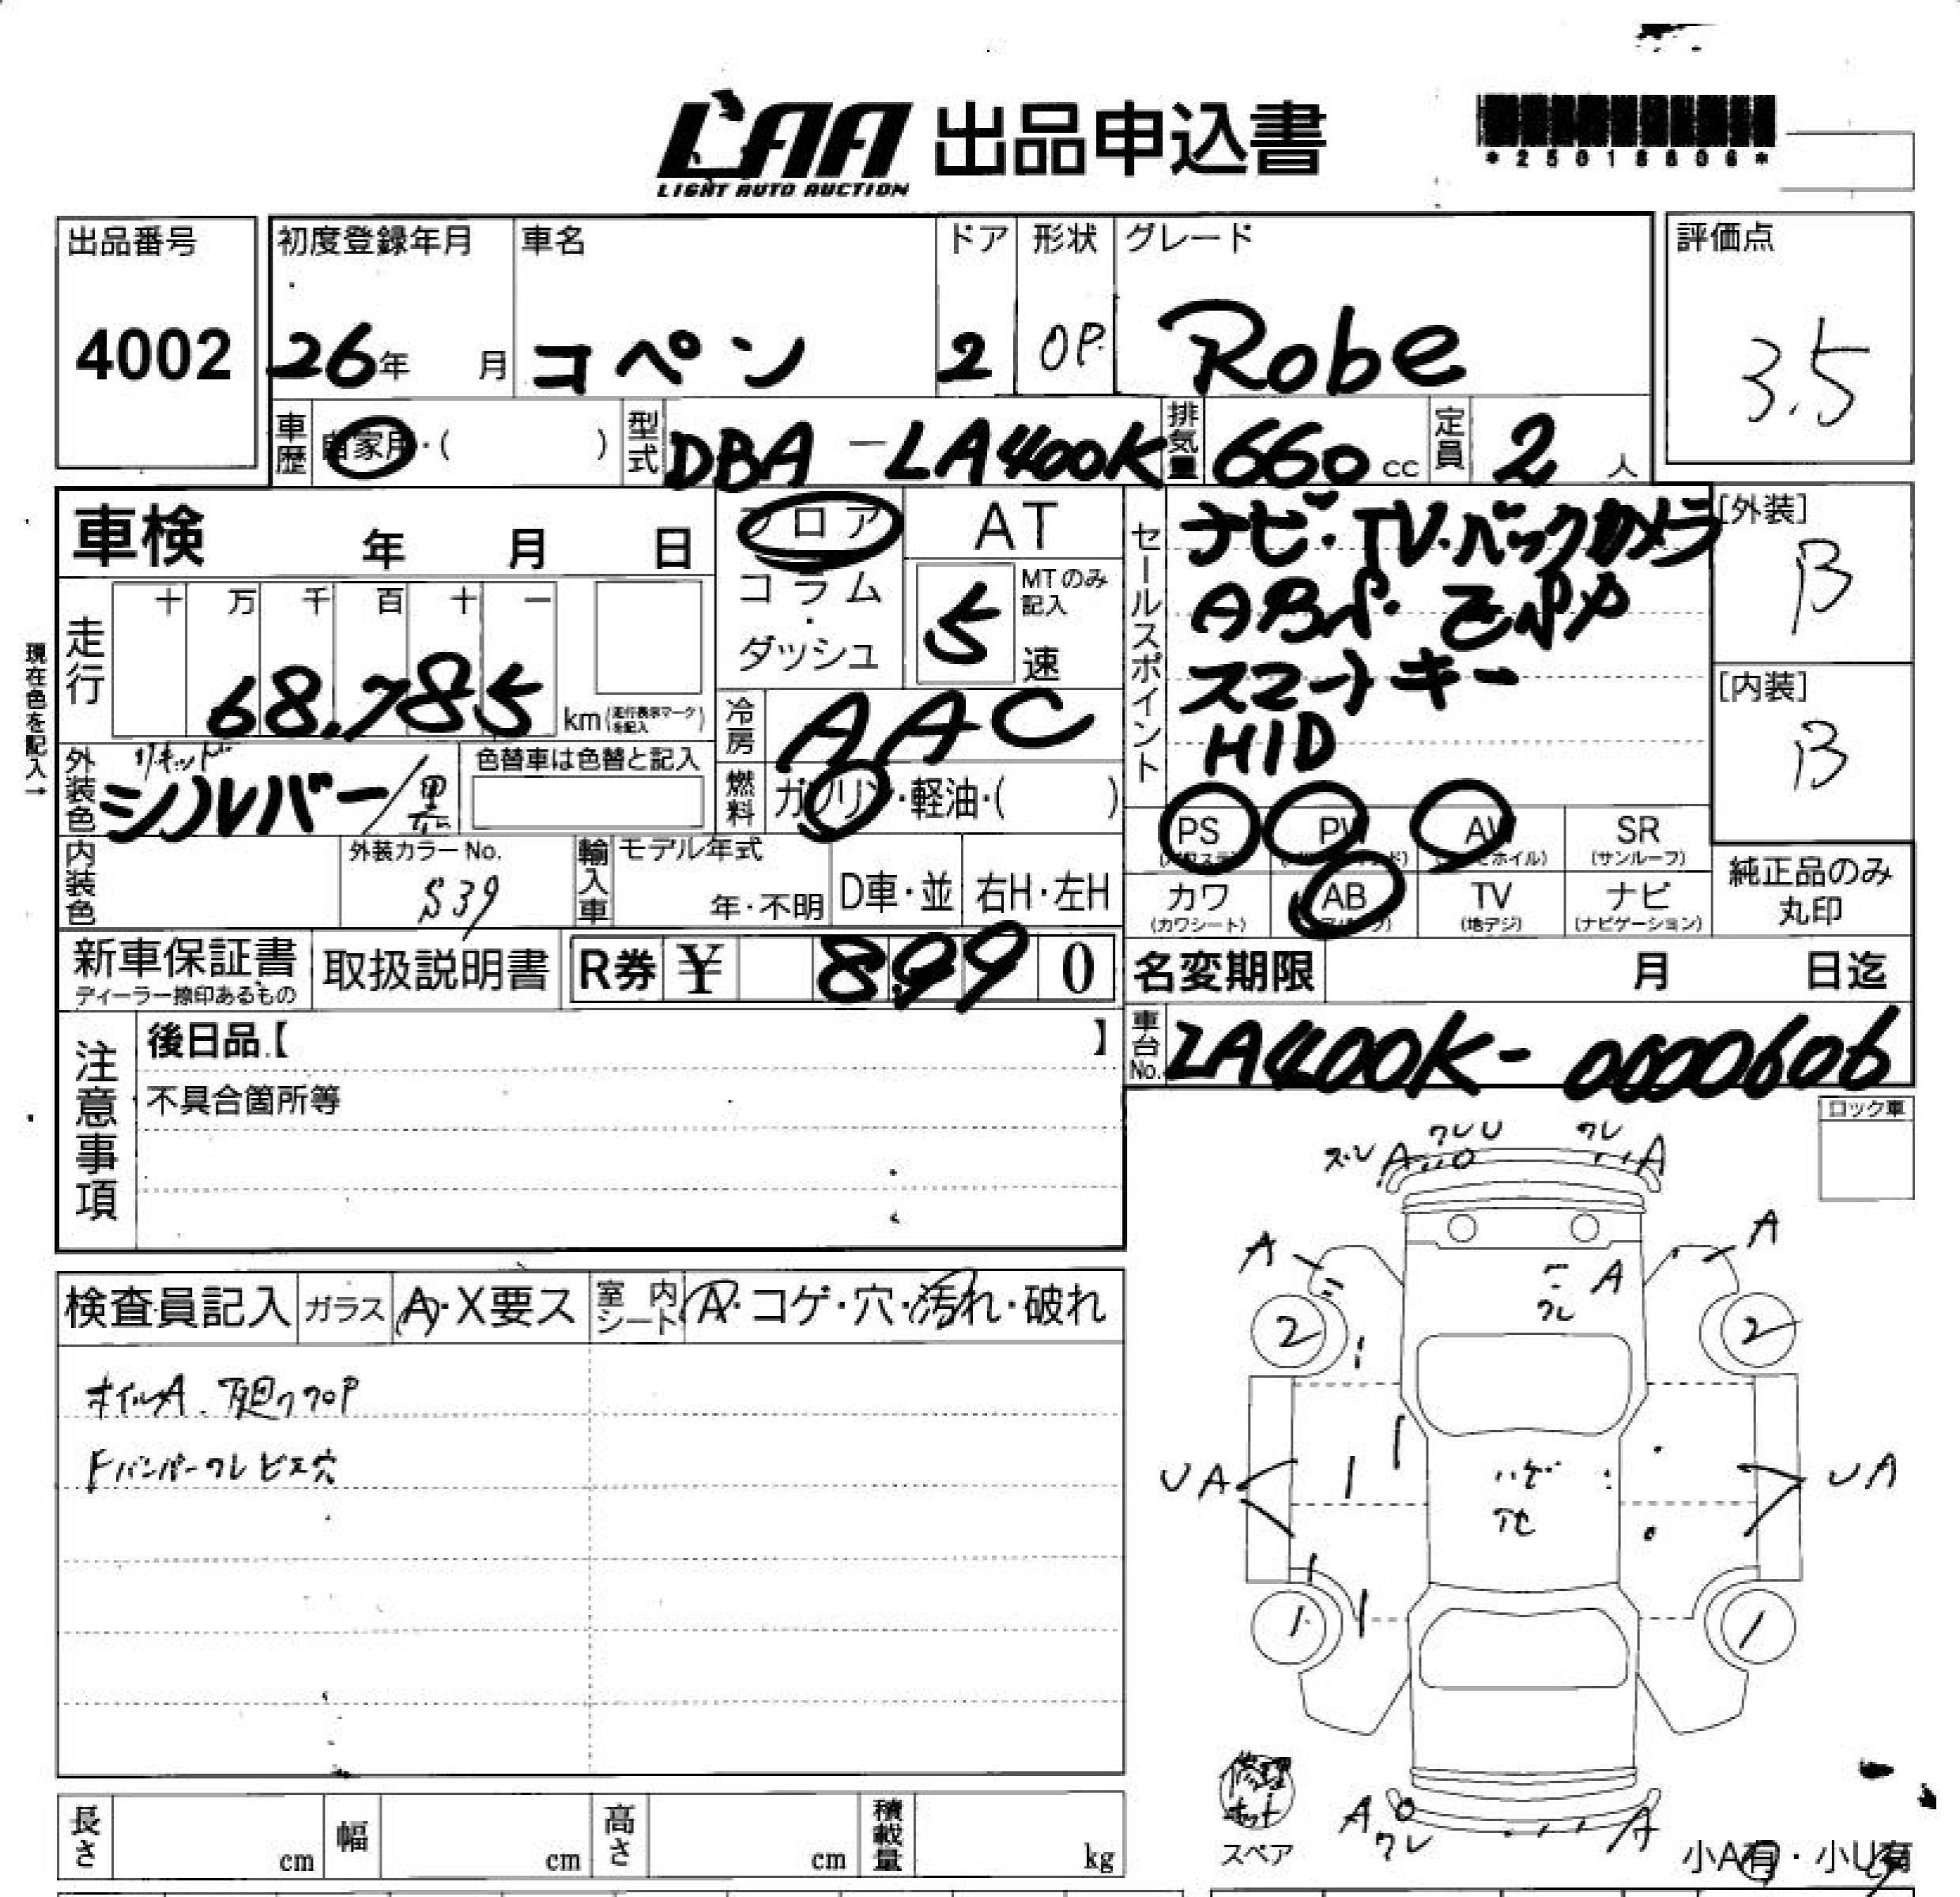 LAA 出品申込書
LIGHT AUTO AUCTION
*25015606*
出品番号
4002
初度登録年月
26年 月
車名
コペン
ドア
2
形状
OP.
グレード
Robe
評価点
3.5
車歴
自家用・( )
型式
DBA-LA400K
排気量
660 cc
定員
2 人
車検 年 月 日
フロア
コラム
・
ダッシュ
AT
5
MTのみ記入
速
セールスポイント
ナビ・TV・バックカメラ
ABS・エアB
スマートキー
HID
[外装]
B
[内装]
B
現在色を記入→
走行
十 万 千 百 十 一
68,785
km(走行表示マークを記入)
冷房
AAC
外装色
シルバー/黒
色替車は色替と記入
燃料
ガソリン・軽油・( )
PS
PW
AW
(アルミホイル)
SR
(サンルーフ)
カワ
(カワシート)
AB
TV
(地デジ)
ナビ
(ナビゲーション)
純正品のみ
丸印
内装色
外装カラーNo.
S39
輸入車
モデル年式
年・不明
D車・並
右H・左H
新車保証書
ディーラー捺印あるもの
取扱説明書
R券 ¥ 8,990
名変期限 月 日迄
車台No.
LA400K-0000606
注意事項
後日品【 】
不具合箇所等
ロック車
ワレU
ワレ
ズレ A
A
A
A
A
ワレ
2
2
UA
UA
ハゲ
他
1
1
A
ワレ
A
修理
キット
スペア
小A有・小U有
検査員記入
ガラス
A・X要ス
室内シート
A・コゲ・穴・汚れ・破れ
オイルA.
Fバンパーワレ ビス穴
長さ cm
幅 cm
高さ cm
積載量 kg